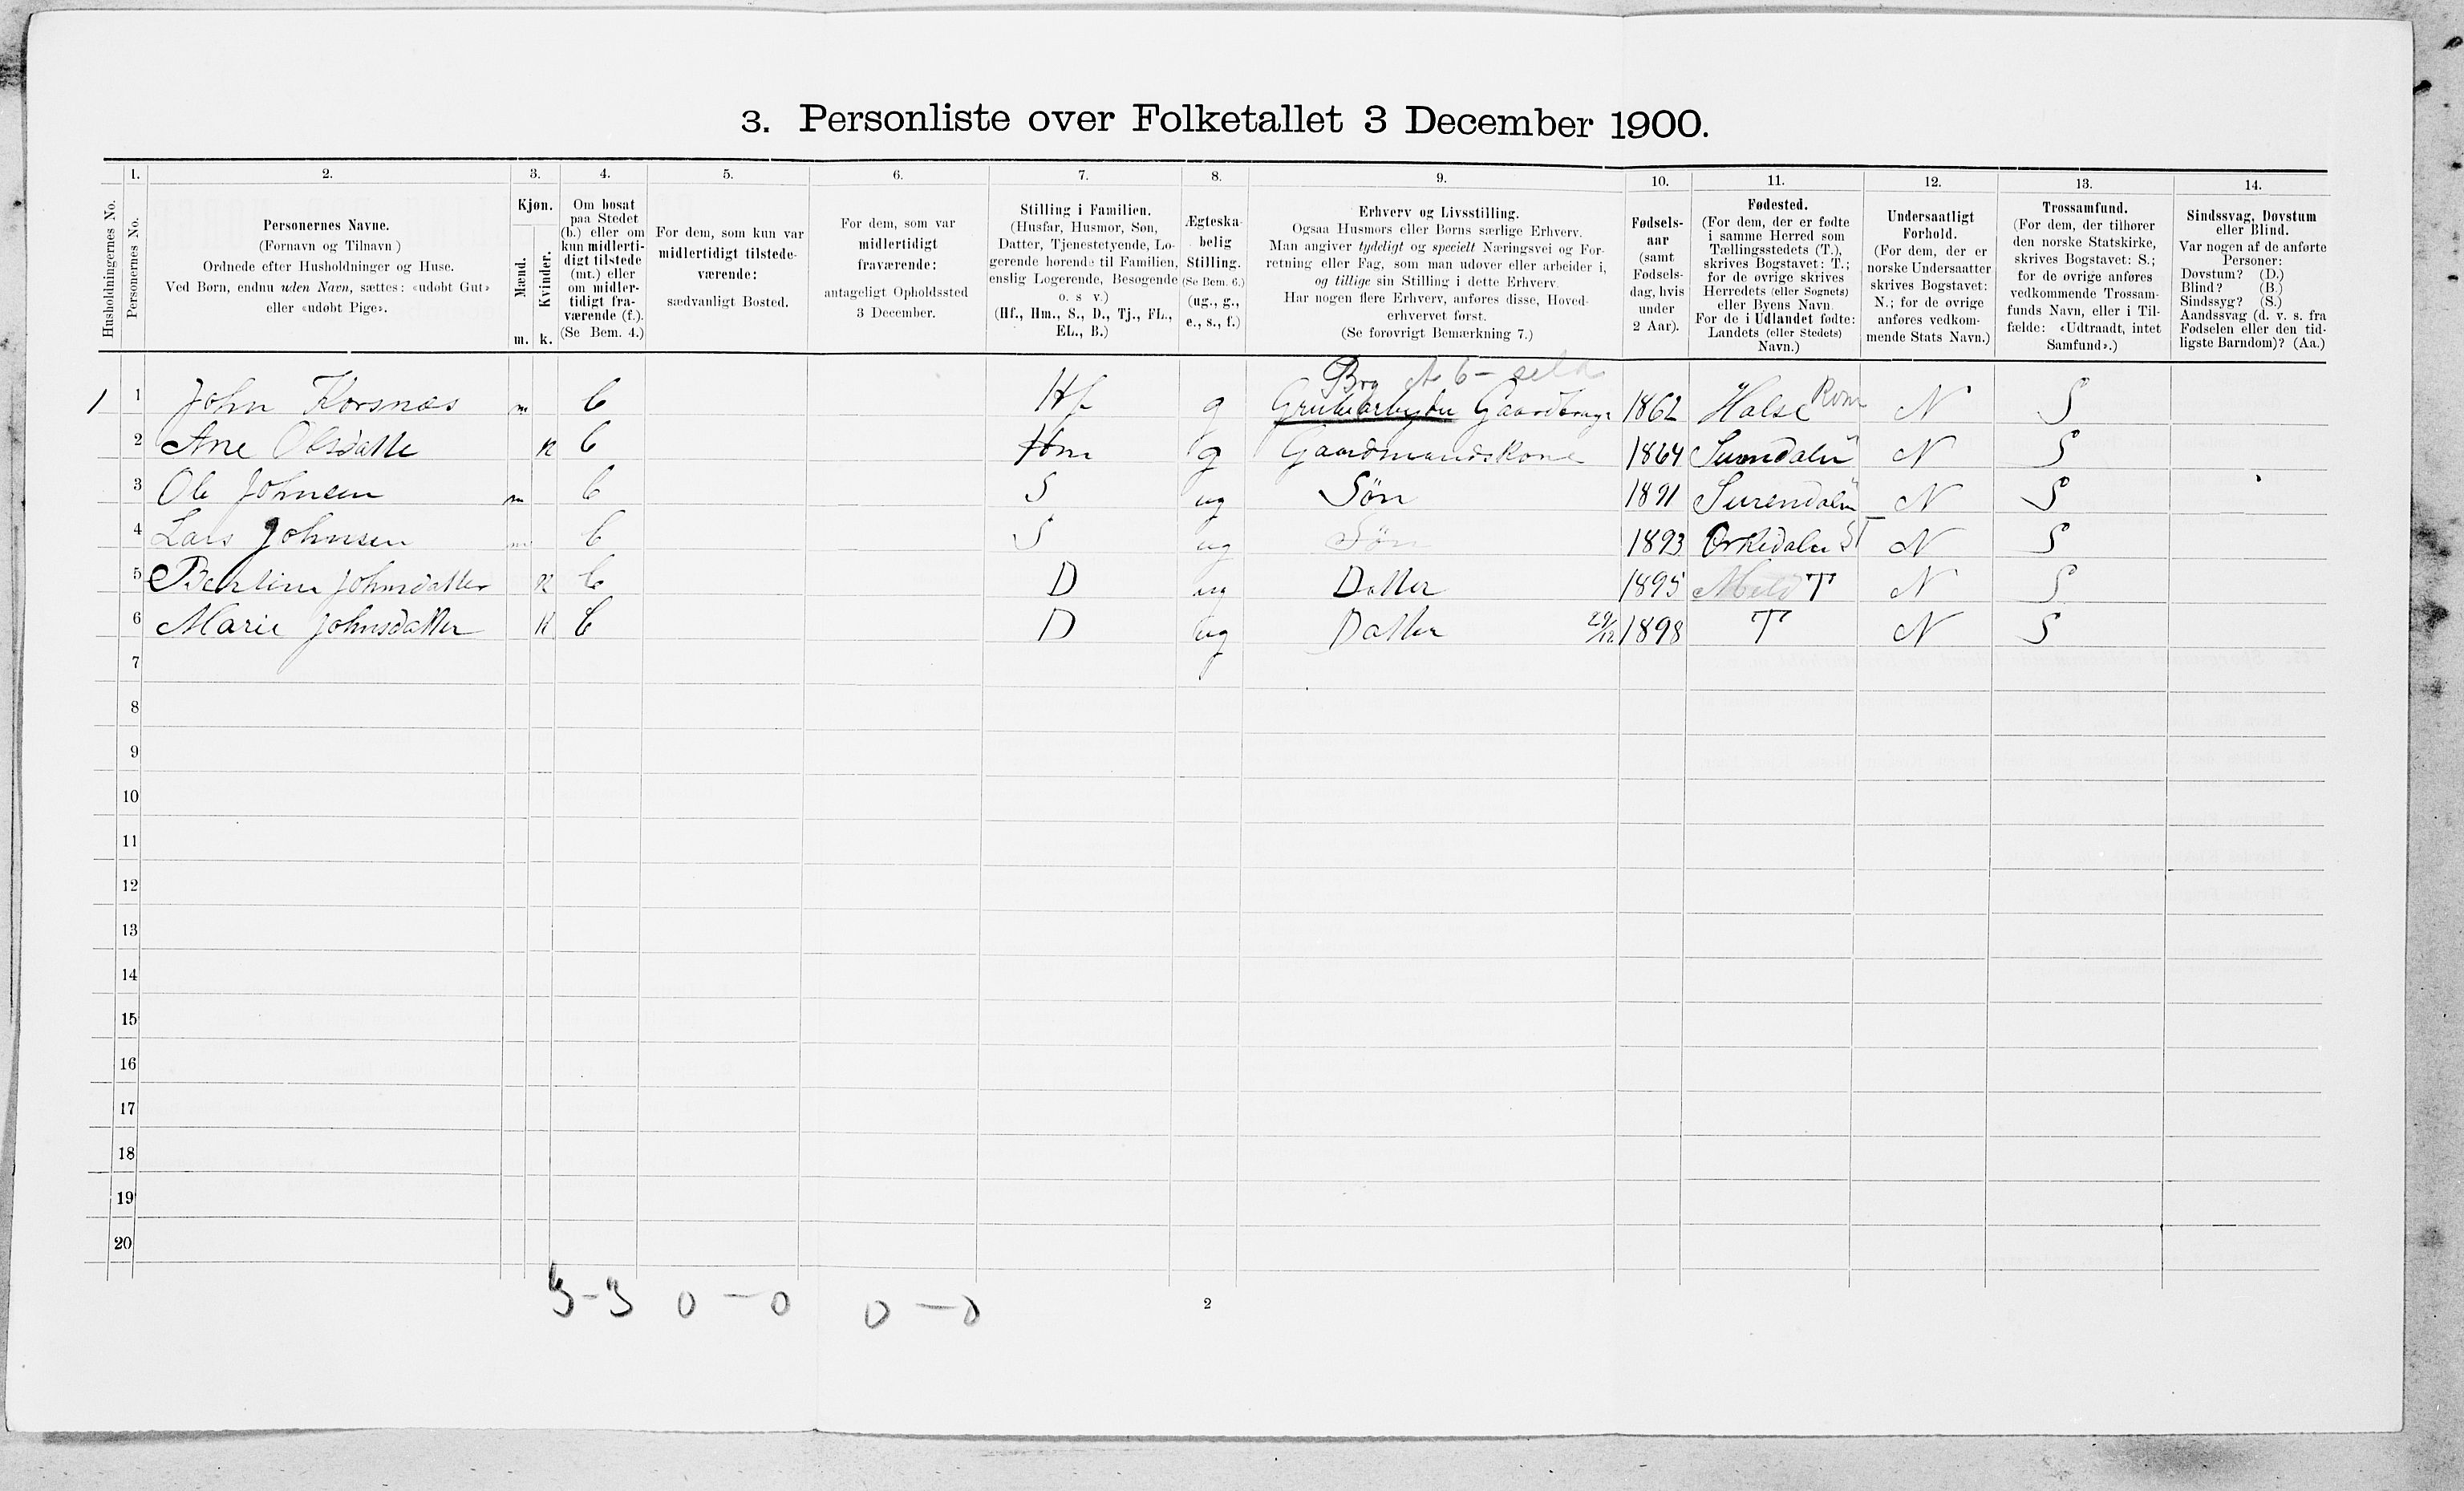 3. Personliste over Folketallet 3 December 1900.
Husholdningernes No.
1.
Personernes No.
2.
Personernes Navne.
(Fornavn og Tilnavn)
Ordnede efter Husholdninger og Huse.
Ved Børn, endnu uden Navn, sættes: «udøbt Gut»
eller «udøbt Pige».
3.
Kjøn.
Mænd.
Kvinder.
m. k.
4.
Om bosat
paa Stedet
(b.) eller om
kun midlerti-
digt tilstede
(mt.) eller
om midler-
tidigt fra-
værende (f.).
(Se Bem. 4.)
5.
For dem, som kun var
midlertidigt tilstede-
værende:
sædvanligt Bosted.
6.
For dem, som var
midlertidigt
fraværende:
antageligt Opholdssted
3 December.
7.
Stilling i Familien.
(Husfar, Husmor, Søn,
Datter, Tjenestetyende, Lo-
gerende hørende til Familien,
enslig Logerende, Besøgende
o. s v.)
(Hf., Hm., S., D., Tj., FL.,
EL., B.)
8.
Ægteska-
belig
Stilling.
(Se Bem. 6.)
(ug., g.,
e., s., f.)
9.
Erhverv og Livsstilling.
Ogsaa Husmors eller Børns særlige Erhverv.
Man angiver tydeligt og specielt Næringsvei og For-
retning eller Fag, som man udøver eller arbeider i,
og tillige sin Stilling i dette Erhverv.
Har nogen flere Erhverv, anføres disse, Hoved-
erhvervet først.
(Se forøvrigt Bemærkning 7.)
10.
Fødsels-
aar
(samt
Fødsels-
dag, hvis
under
2 Aar).
11.
Fødested.
(For dem, der er fødte
i samme Herred som
Tællingsstedets (T.),
skrives Bogstavet: T.;
for de øvrige skrives
Herredets (eller Sognets)
eller Byens Navn.
For de i Udlandet fødte:
Landets (eller Stedets)
Navn.)
12.
Undersaatligt
Forhold.
(For dem, der er
norske Undersaatter
skrives Bogstavet:
N.; for de øvrige
anføres vedkom-
mende Stats Navn.)
13.
Trossamfund.
(For dem, der tilhører
den norske Statskirke,
skrives Bogstavet: S.;
for de øvrige anføres
vedkommende Trossam-
funds Navn, eller i Til-
fælde: «Udtraadt, intet
Samfund».)
14.
Sindssvag, Døvstum
eller Blind.
Var nogen af de anførte
Personer:
Døvstum? (D.)
Blind? (B.)
Sindssyg? (S.)
Aandssvag (d. v. s. fra
Fødselen eller den tid-
ligste Barndom)? (Aa.)
Brg
1 1 John Korsnæs m b Hf g Grubearbeider Gaardbrug. 1862 Halse Rom N S
2 Ane Olsdatte k b Hm g Gaardmandskone 1864 Surendalen N S
3 Ole Johnsen m b S ug Søn 1891 Surendalen N S
4 Lars Johnsen m b S ug Søn 1893 Orkedalen ST N S
5 Bertine Johnsdatter k b D ug Datter 1895 Meld T N S
6 Marie Johnsdatter k b D ug Datter 29/12 1898 T N S
7
8
9
10
11
12
13
14
15
16
17
18
19
20
3-3 0-0 0-0
2